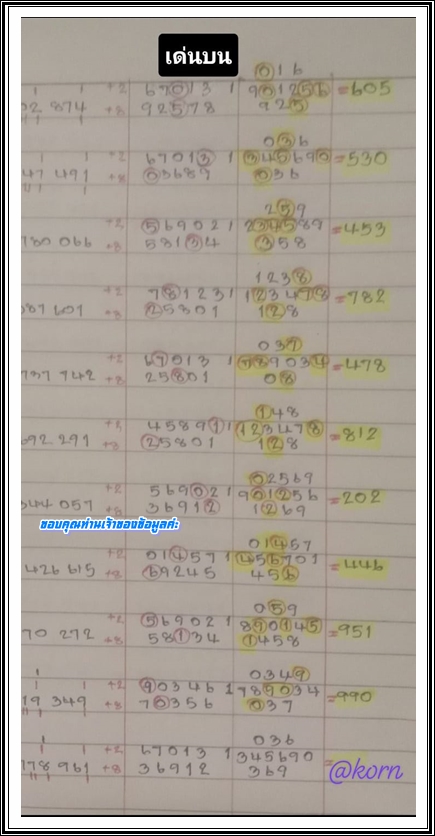 เด่นบน
016
+2 67013 1 901256 =605
02 874 +8 92578 925
036
+2 67013 1 345690 =530
47 491 +8 03689 036
259
+2 569021 234589 =453
780 066 +8 53134 358
1238
+2 78123 1 123478 =782
087 601 +8 25301 128
037
+2 67013 1 789034 =478
737 742 +8 25801 08
148
+2 45891 1 123478 =812
692 291 +8 25801 128
02569
+2 56902 1 901256 =202
344 057 +8 36912 1269
ขอบคุณท่านเจ้าของข้อมูลค่ะ
01457
+2 01457 1 456701 =446
426 615 +8 69245 456
059
+2 56902 1 890145 =951
70 272 +8 58134 1458
0349
+2 90346 1 789034 =990
19 349 +8 70356 037
036
+2 67013 1 345690
178 961 +8 36912 369
@korn